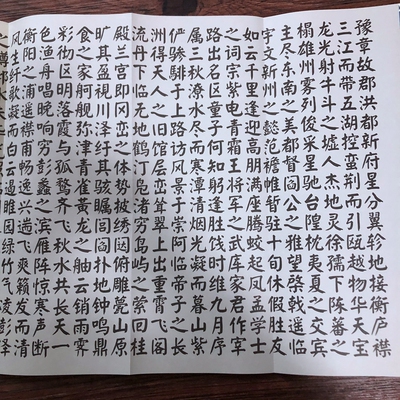 豫章故郡洪都新府星分翼轸地接衡庐襟
三江而带五湖控蛮荆而引瓯越物华天宝
龙光射牛斗之墟人杰地灵徐孺下陈蕃之
榻雄州雾列俊采星驰台隍枕夷夏之交宾
主尽东南之美都督阎公之雅望棨戟遥临
宇文新州之懿范襜帷暂驻十旬休假胜友
如云千里逢迎高朋满座腾蛟起凤孟学士
之词宗紫电青霜王将军之武库家君作宰
路出名区童子何知躬逢胜饯时维九月序
属三秋潦水尽而寒潭清烟光凝而暮山紫
俨骖騑于上路访风景于崇阿临帝子之长
洲得天人之旧馆层峦耸翠上出重霄飞阁
流丹下临无地鹤汀凫渚穷岛屿之萦回桂
殿兰宫即冈峦之体势披绣闼俯雕甍山原
旷其盈视川泽纡其骇瞩闾阎扑地钟鸣鼎
食之家舸舰弥津青雀黄龙之舳云销雨霁
彩彻区明落霞与孤鹜齐飞秋水共长天一
色渔舟唱晚响穷彭蠡之滨雁阵惊寒声断
衡阳之浦遥襟甫畅逸兴遄飞爽籁发而清
风生纤歌凝而白云遏睢园绿竹气凌彭泽
之樽邺水